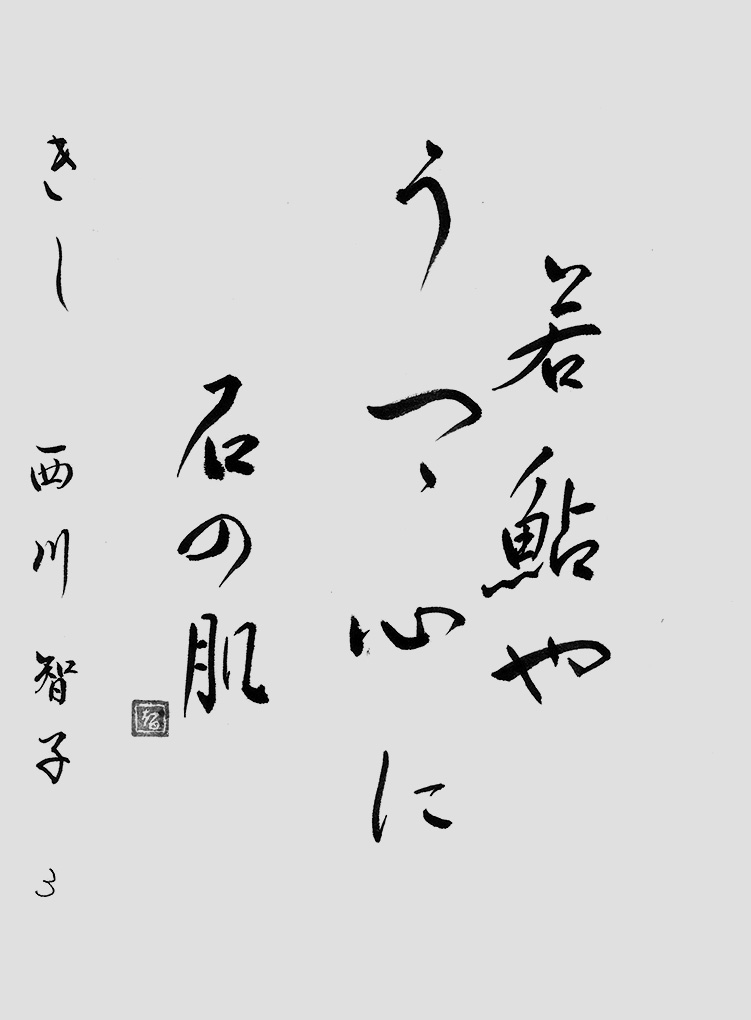 若鮎や
うつゝ心に
石の肌
きし 西川智子 3